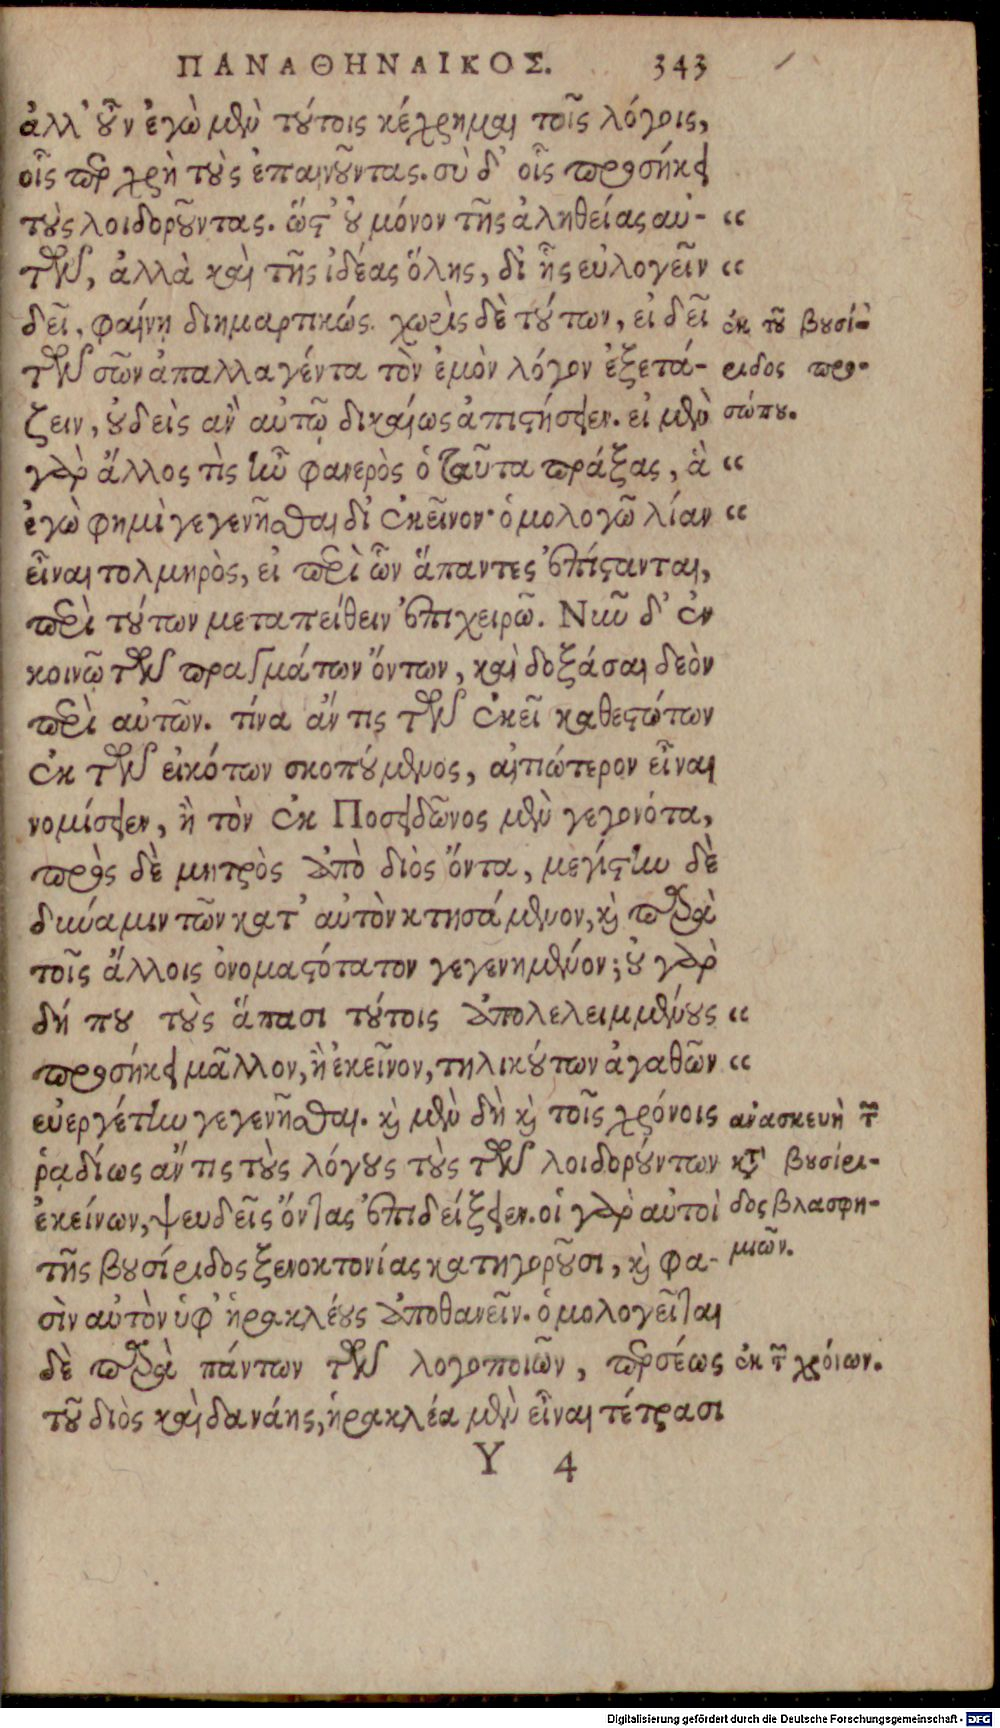 ΠΑΝΑΘΗΝΑΙΚΟΣ. 343
ἀλλ' οὖν ἐγὼ μὲν τούτοις κέχρημαι τοῖς λόγοις,
οἷς περ χρὴ τοὺς ἐπαινοῦντας. σὺ δ' οἷς προσήκει
τοὺς λοιδοροῦντας. ὥστ' οὐ μόνον τῆς ἀληθείας αὐ- “
τῶν, ἀλλὰ καὶ τῆς ἰδέας ὅλης, δι' ἧς εὐλογεῖν “
δεῖ, φαίνῃ διημαρτικώς. χωρὶς δὲ τούτων, εἰ δεῖ
ἐκ τοῦ βουσί-
τῶν σῶν ἀπαλλαγέντα τὸν ἐμὸν λόγον ἐξετά-
ριδος προ-
ζειν, οὐδεὶς ἂν αὐτῷ δικαίως ἀπιστήσειεν. εἰ μὲν
σώπου.
γὰρ ἄλλος τὶς ἦν φανερὸς ὁ ταῦτα πράξας, ἃ “
ἐγὼ φημὶ γεγενῆσθαι δι' ἐκεῖνον· ὁμολογῶ λίαν “
εἶναι τολμηρὸς, εἰ περὶ ὧν ἅπαντες ἐπίστανται,
περὶ τούτων μεταπείθειν ἐπιχειρῶ. Νῦν δ' ἐν
κοινῷ τῶν πραγμάτων ὄντων, καὶ δοξάσαι δεὸν
περὶ αὐτῶν. τίνα ἄν τις τῶν ἐκεῖ καθεστώτων
ἐκ τῶν εἰκότων σκοπούμενος, αἰτιώτερον εἶναι
νομίσειεν, ἢ τὸν ἐκ Ποσειδῶνος μὲν γεγονότα,
πρὸς δὲ μητρὸς ἀπὸ διὸς ὄντα, μεγίστην δὲ
δύναμιν τῶν κατ' αὐτὸν κτησάμενον, καὶ παρὰ
τοῖς ἄλλοις ὀνομαστότατον γεγενημένον; οὐ γὰρ
δή που τοὺς ἅπασι τούτοις ἀπολελειμμένους “
προσήκει μᾶλλον, ἢ ἐκεῖνον, τηλικούτων ἀγαθῶν “
εὐεργέτην γεγενῆσθαι. καὶ μὲν δὴ καὶ τοῖς χρόνοις
ἀνασκευὴ τῶν
ῥᾳδίως ἄν τις τοὺς λόγους τοὺς τῶν λοιδορούντων
κατὰ βουσίρι-
ἐκείνων, ψευδεῖς ὄντας ἐπιδείξειεν. οἱ γὰρ αὐτοὶ
δος βλασφη-
τῆς βουσίριδος ξενοκτονίας κατηγοροῦσι, καὶ φα-
μιῶν.
σὶν αὐτὸν ὑφ' ἡρακλέους ἀποθανεῖν. ὁμολογεῖται
δὲ παρὰ πάντων τῶν λογοποιῶν, περσέως
ἐκ τῶν χρόνων.
τοῦ διὸς καὶ δανάης, ἡρακλέα μὲν εἶναι τέτρασι
Y 4
Digitalisierung gefördert durch die Deutsche Forschungsgemeinschaft - DFG